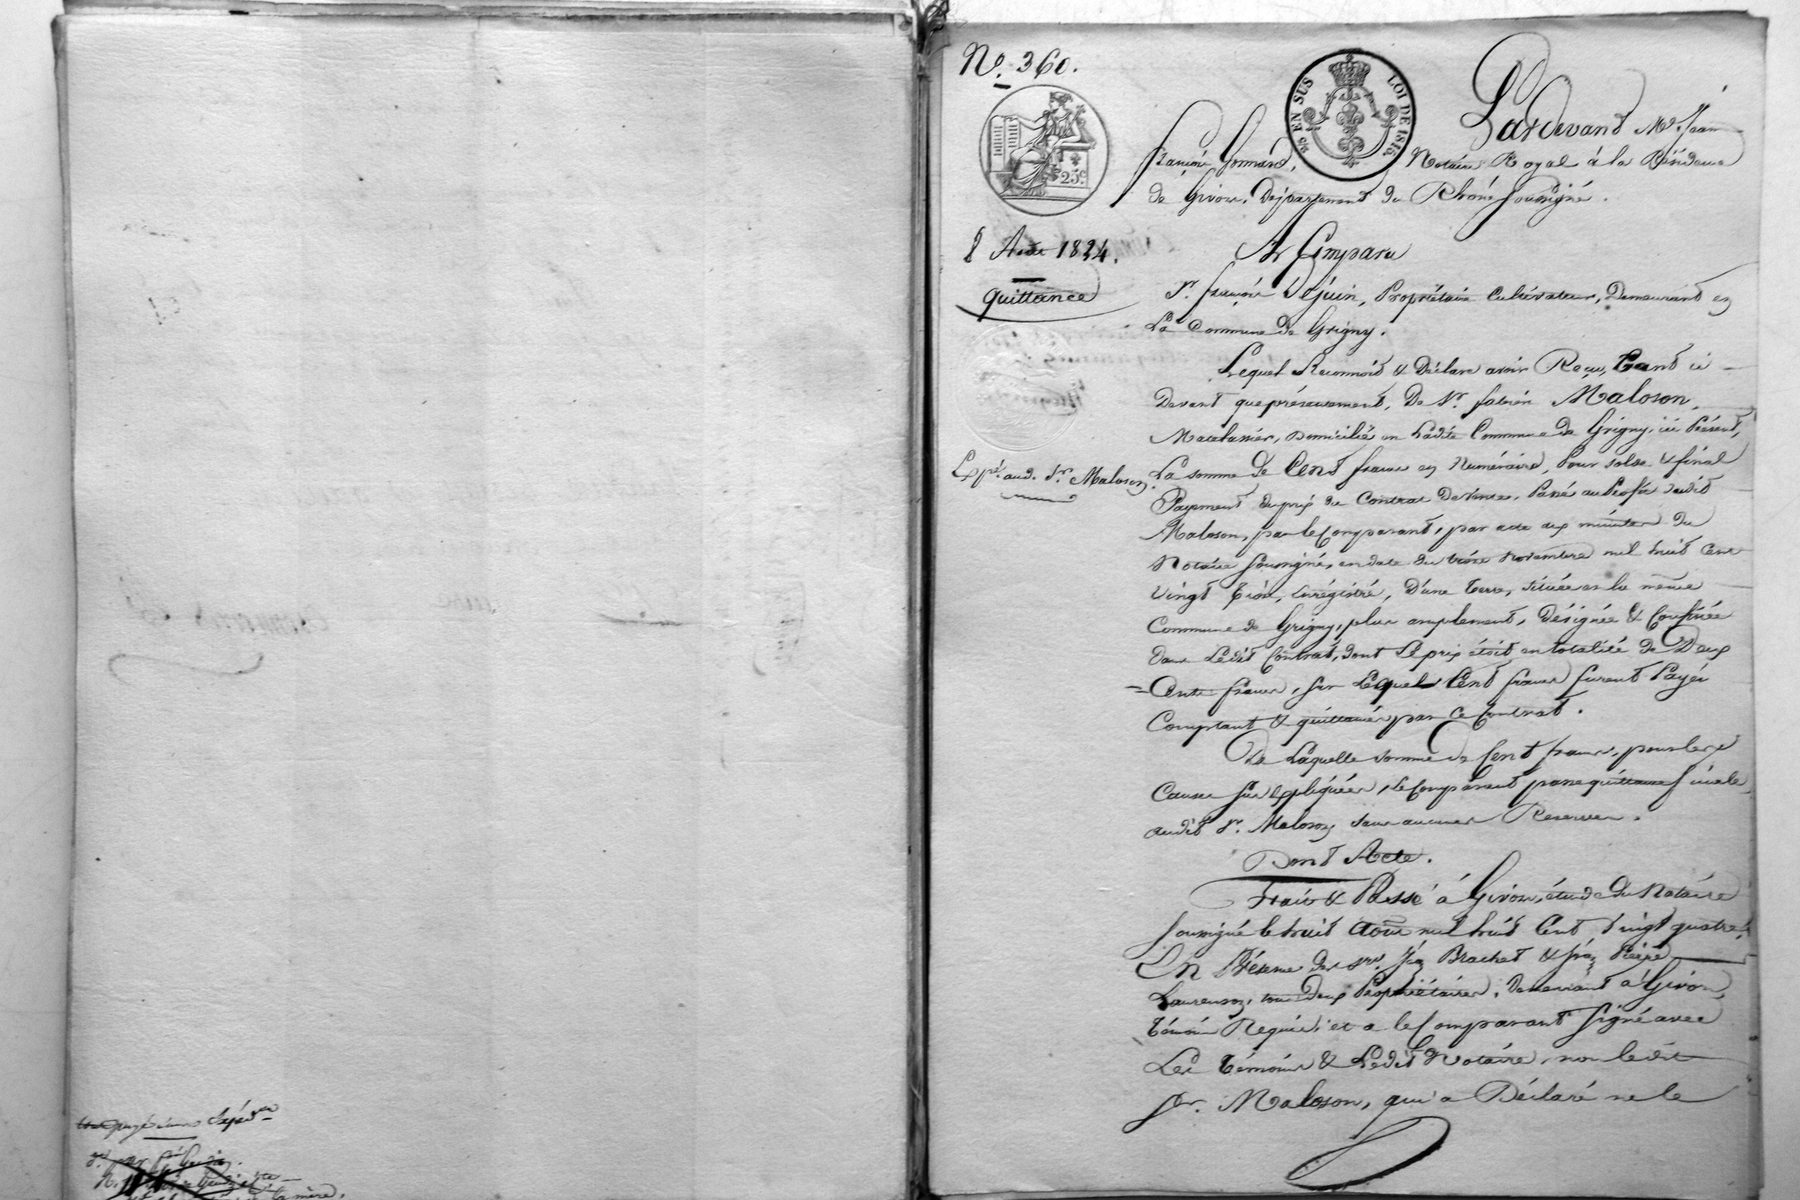 No. 360.
EN SUS LOI DE 1816.
25c
Pardevant Me. Jean
françois Notaire Royal à la Résidence
de Givors, Département du Rhône soussigné.
8 Août 1824.
A Comparu
quittance
Sr. françois Dejuin, Propriétaire Cultivateur, Demeurant en
La Commune de Grigny.
Lequel Reconnoit & Déclare avoir Reçu, tant ci
Devant que présentement, De Sr. Maloson,
Matelassier, Domicilié en Ladite Commune de Grigny, ici Présent,
Expé. aud. Sr. Maloson.
La somme de Cent francs en Numéraire, Pour solde & final
Payement du prix du Contrat De Vente, Passé au Profit dudit
Maloson, par le Comparant, par acte aux minutes du
Notaire soussigné, en date du trois Novembre mil huit Cent
vingt trois, Enrégistré, D'une terre, située en la même
Commune de Grigny, plus amplement, Désignée & Confinée
dans Ledit Contrat, dont Le prix étoit en totalité de Deux
Cents francs, sur Lequel Cent francs furent Payés
Comptant & quittancés par ce Contrat.
De Laquelle somme de Cent francs, pour les
Causes sus Expliquées, le Comparant passe quittance finale
audit Sr. Maloson sans aucunes Reserves.
Dont Acte.
Fait & Passé à Givors, étude du Notaire
soussigné le huit Août mil huit Cent vingt quatre,
En Présence des Srs. Jn. Brachet & frs.
Laurenson, tous Deux Propriétaires, Demeurant à Givors,
témoins Requis, et a le Comparant signé avec
Les témoins & Ledit Notaire, non ledit
Sr. Maloson, qui a Déclaré ne le